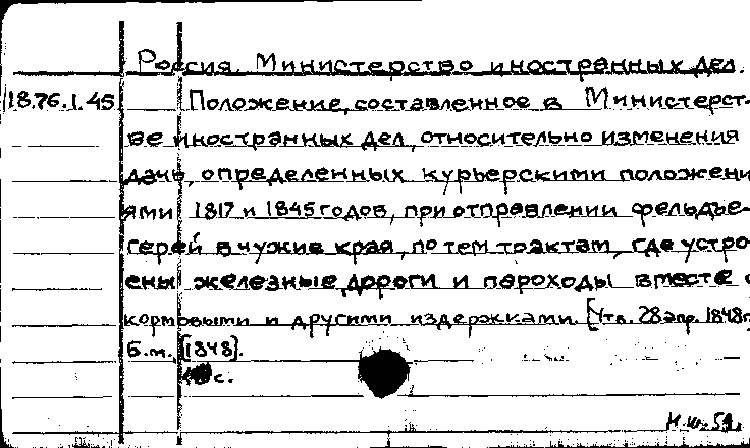 Россия. Министерство иностранных дел.
18.76.1.45 Положение, составленное в Министерст-
ве иностранных дел, относительно изменения
дачь, определенных курьерскими положени
ями 1817 и 1845 годов, при отправлении фельдъе-
герей в чужие края, по тем трактам, где устро
ены железные дороги и пароходы вместе с
кормовыми и другими издержками. [Утв. 28 апр. 1848 г
Б.м., [1848].
с.